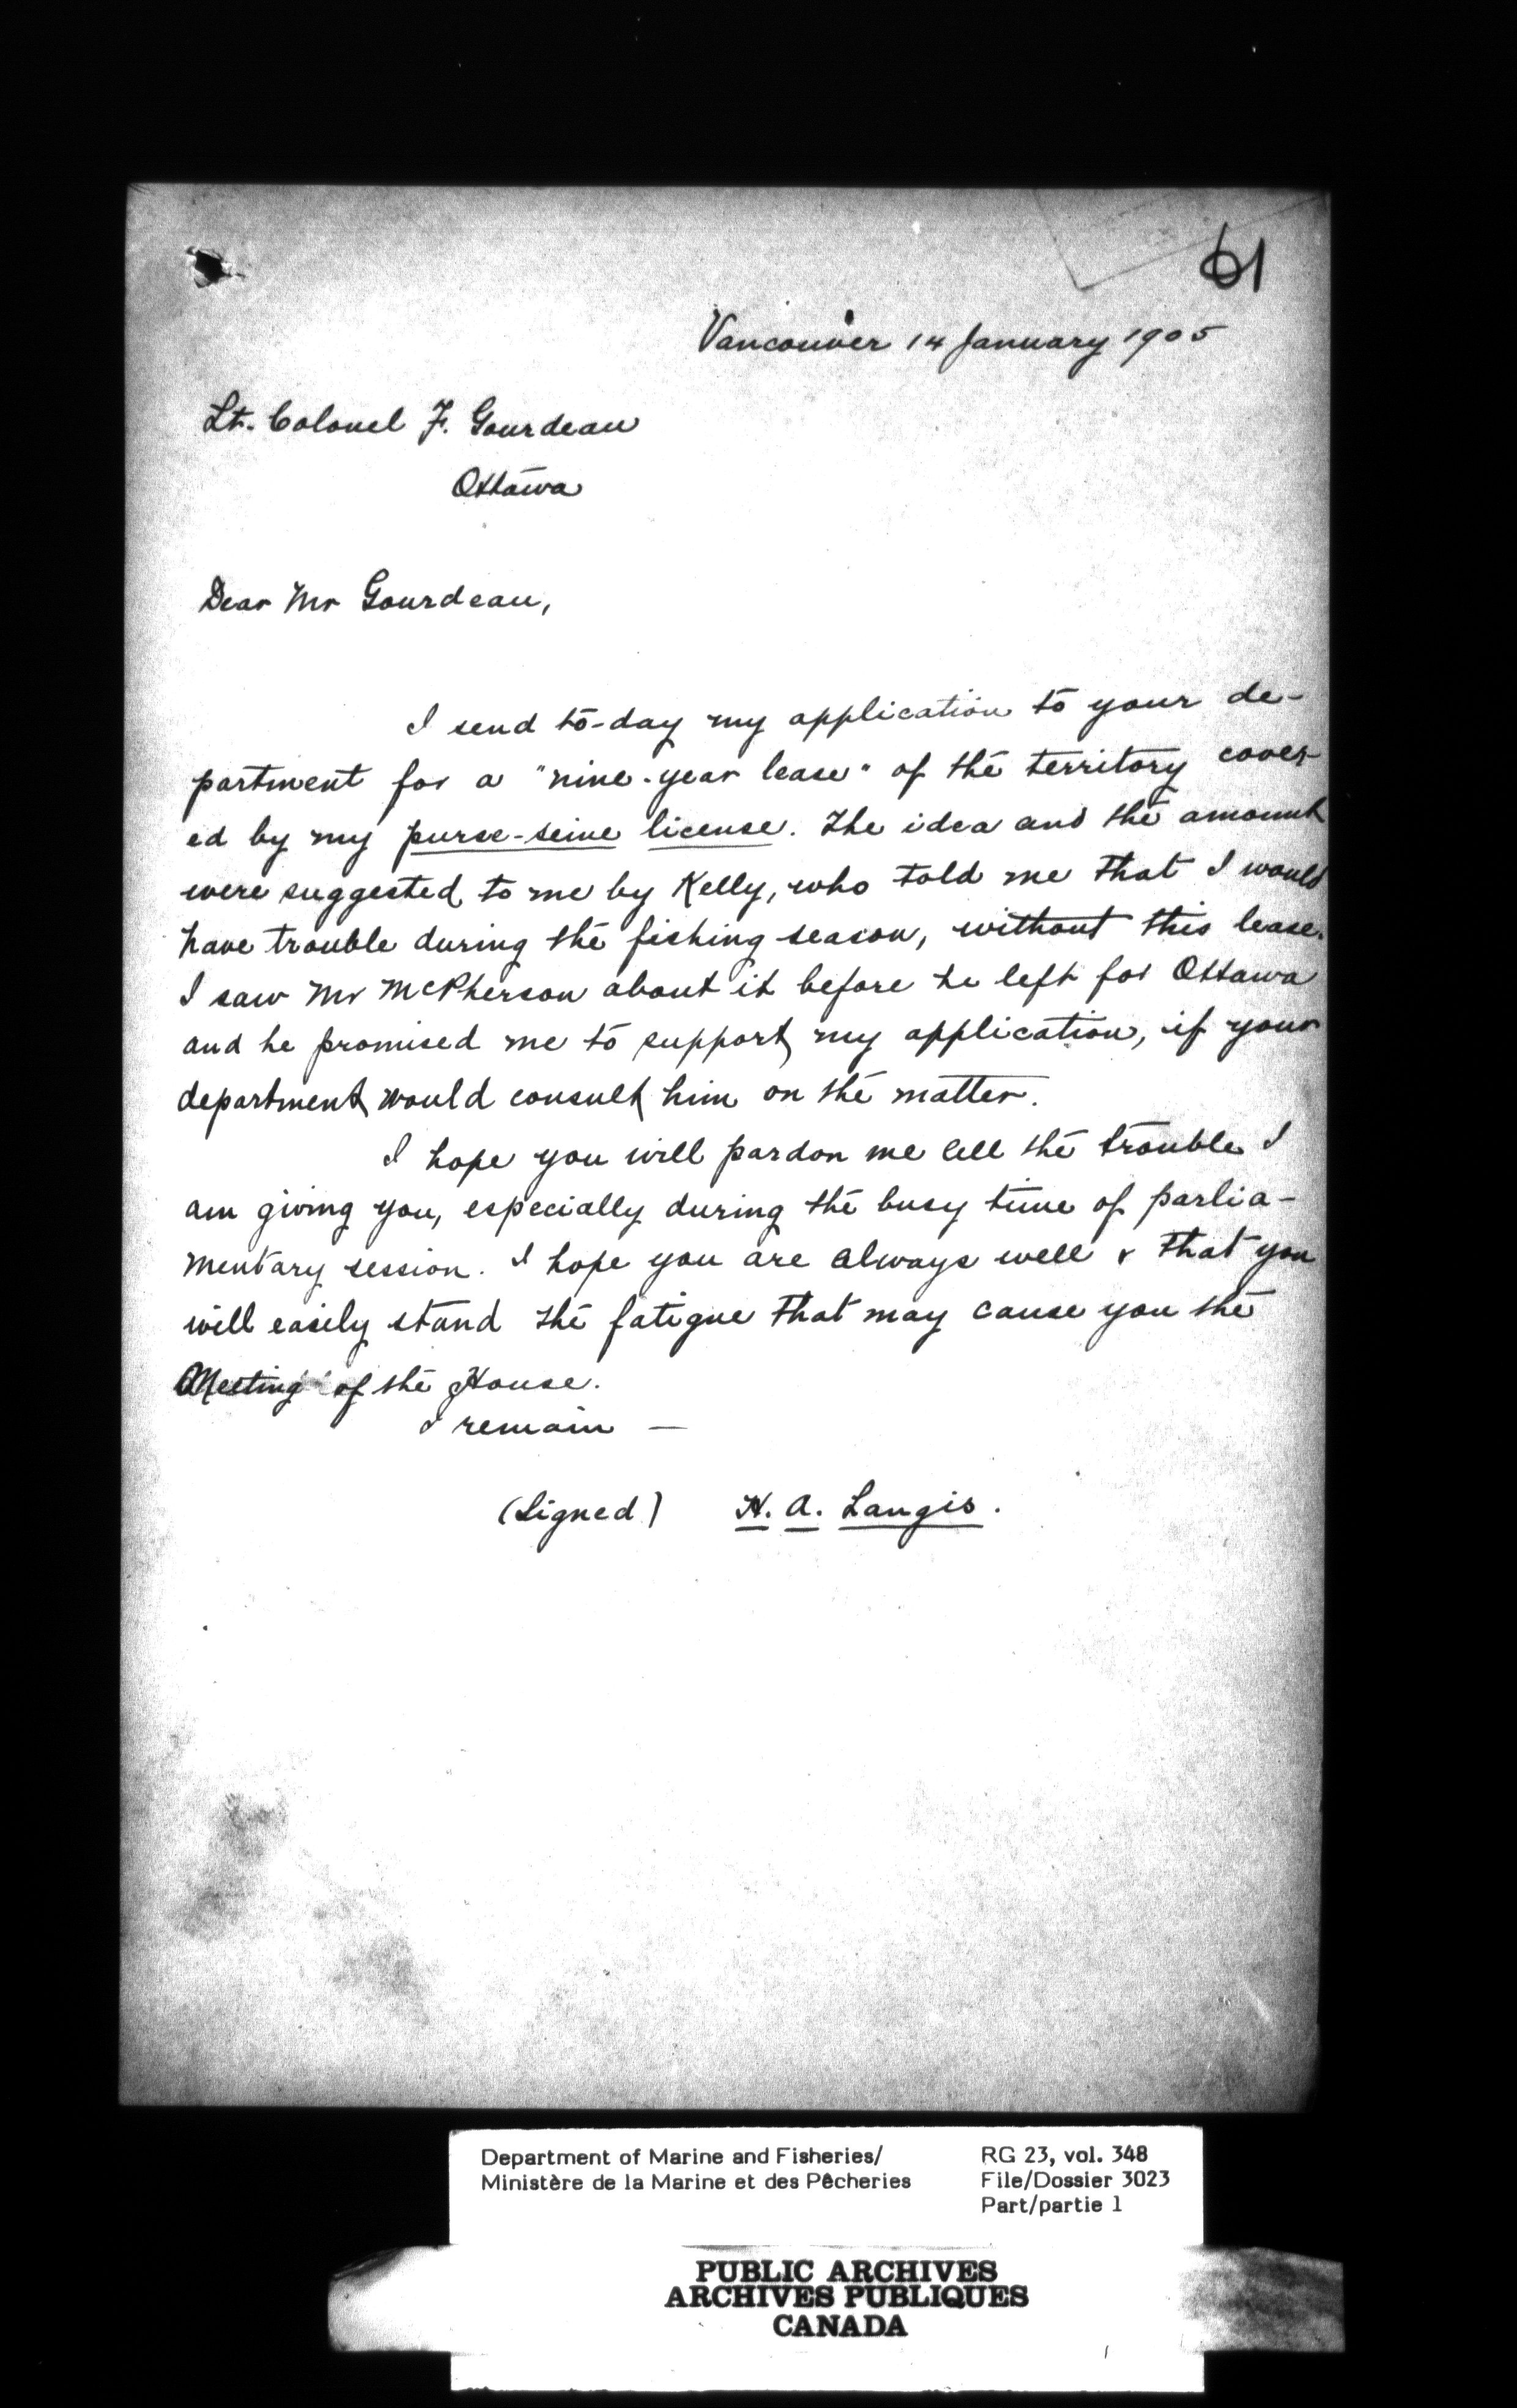 61
Vancouver 14 January 1905
Lt. Colonel F. Gourdeau
Ottawa
Dear Mr Gourdeau,
I send to-day my application to your de-
partment for a "nine-year lease" of the territory cover-
ed by my purse-seine license. The idea and the amount
were suggested to me by Kelly, who told me that I would
have trouble during the fishing season, without this lease.
I saw Mr McPherson about it before he left for Ottawa
and he promised me to support my application, if your
department would consult him on the matter.
I hope you will pardon me all the trouble I
am giving you, especially during the busy time of parlia-
mentary session. I hope you are always well & that you
will easily stand the fatigue that may cause you the
Meeting of the House.
I remain —
(Signed) H. A. Langis.
Department of Marine and Fisheries/ RG 23, vol. 348
Ministère de la Marine et des Pêcheries File/Dossier 3023
Part/partie 1
PUBLIC ARCHIVES
ARCHIVES PUBLIQUES
CANADA